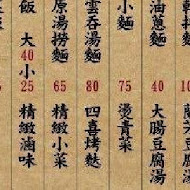 油蔥麵
40
大腸豆腐湯
小麵
75
燙青菜
雲吞湯麵
80
四喜烤麩
原湯撈麵
65
精緻小菜
飯 大
40
小
25
精緻滷味